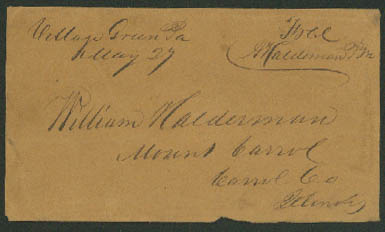 Village Green Pa
May 27
Free
Haldeman P.M
William Halderman
Mount Carrol
Carrol Co
Illinois